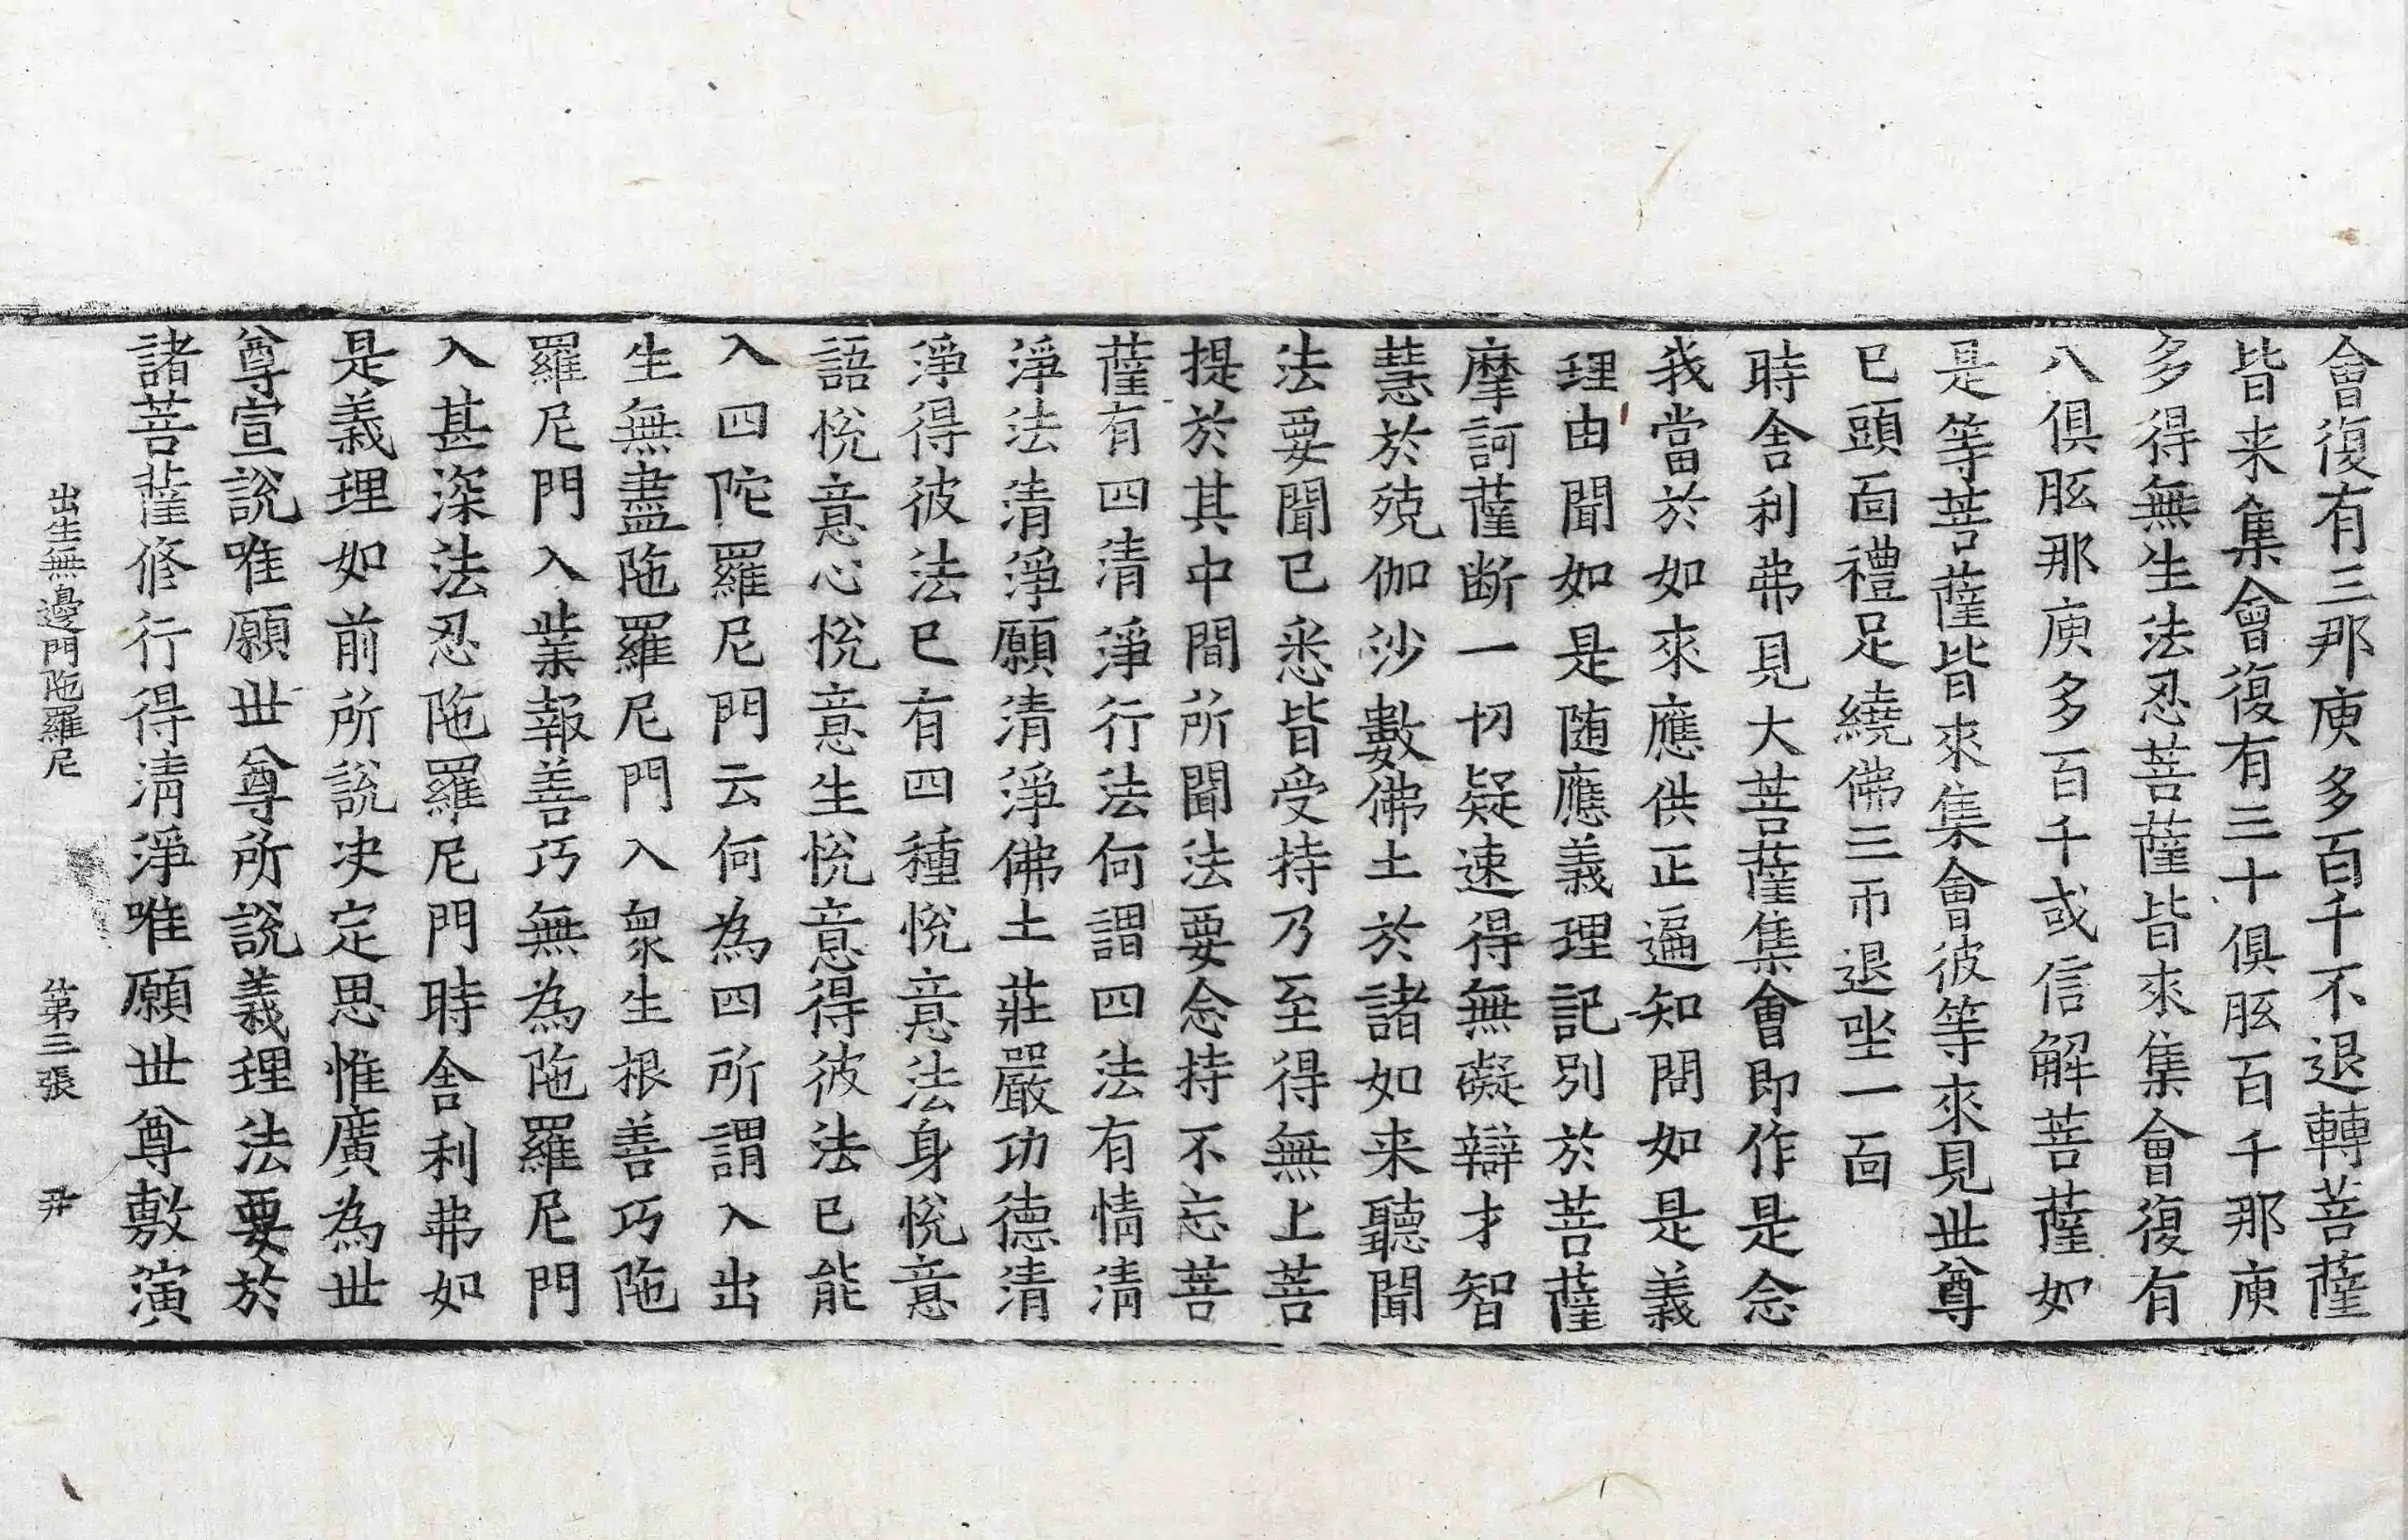 會復有三那庾多百千不退轉菩薩
皆来集會復有三十俱胝百千那庾
多得無生法忍菩薩皆來集會復有
八俱胝那庾多百千或信解菩薩如
是等菩薩皆來集會彼等來見丗尊
已頭面禮足繞佛三帀退坐一面
時舍利弗見大菩薩集會即作是念
我當於如來應供正遍知問如是義
理由聞如是随應義理記別於菩薩
摩訶薩断一切疑速得無礙辯才智
慧於殑伽沙數佛土於諸如来聽聞
法要聞已悉皆受持乃至得無上菩
提於其中間所聞法要念持不忘菩
薩有四清淨行法何謂四法有情清
淨法清淨願清淨佛土莊嚴功德清
淨得彼法已有四種悅意法身悅意
語悅意心悅意生悅意得彼法已能
入四陀羅尼門云何為四所謂入出
生無盡陁羅尼門入衆生根善巧陁
羅尼門入業報善巧無為陁羅尼門
入甚深法忍陁羅尼門時舍利弗如
是義理如前所説决定思惟廣為丗
尊宣說唯願丗尊所說義理法要於
諸菩薩修行得清淨唯願丗尊敷演
出生無邊門陁羅尼 第三張 𠀍